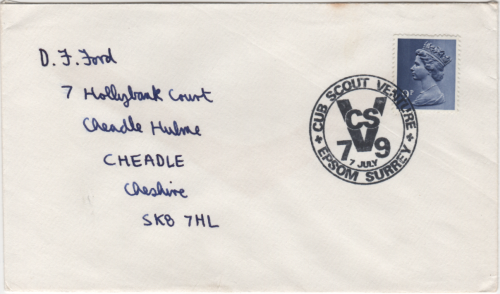 D. F. Ford
7 Hollybank Court
Cheadle Hulme
CHEADLE
Cheshire
SK8 7HL
CUB SCOUT VENTURE
CS
V
7 9
7 JULY
EPSOM SURREY